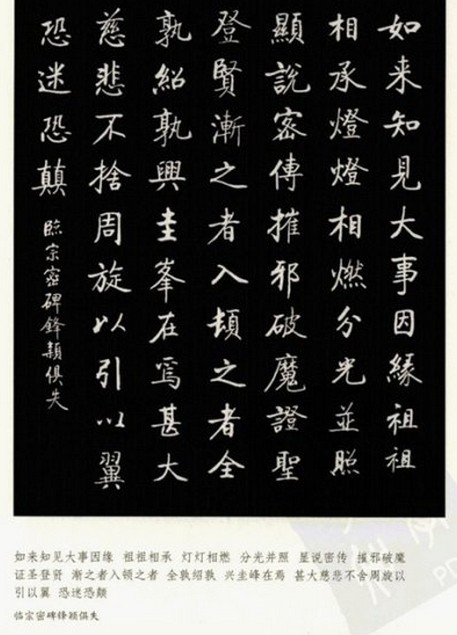 如来知見大事因緣祖祖
相承燈燈相燃分光並照
顯說密傳摧邪破魔證聖
登賢漸之者入頓之者全
孰紹孰興圭峯在焉甚大
慈悲不捨周旋以引以翼
恐迷恐顛
臨宗密碑鋒穎俱失
如来知见大事因缘 祖祖相承 灯灯相燃 分光并照 显说密传 摧邪破魔
证圣登贤 渐之者入领之者 全敦绍敦 兴圭峰在焉 甚大慈悲不舍周旋以
引以翼 恐迷恐颠
临宗密碑锋颖俱失